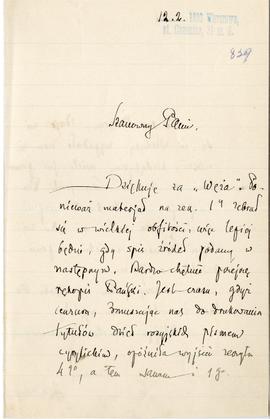 12.2.
Warszawa,
829
Szanowny Panie.
Dziękuję za „Węża". Po-
nieważ materjał na zesz. 1y zebrał
się w wielkiej obfitości, więc lepiej
będzie, gdy spis źródeł podamy w
następnym. Bardzo chętnie przejrzę
rękopis Pański. Jest czasu, gdyż
cenzura, zmuszając nas do drukowania
tytułów dzieł rosyjskich pismem
cyrylickiem, opóźniła wyjście zeszytu
4go, a tem samem i 1go.